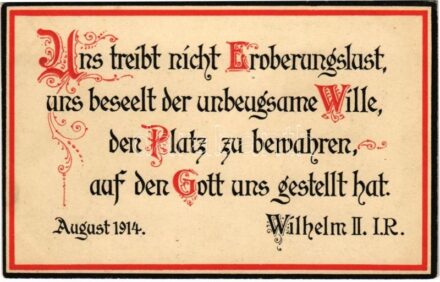 Uns treibt nicht Eroberungslust,
uns beseelt der unbeugsame Wille,
den Platz zu bewahren,
auf den Gott uns gestellt hat.
August 1914. Wilhelm II. I.R.